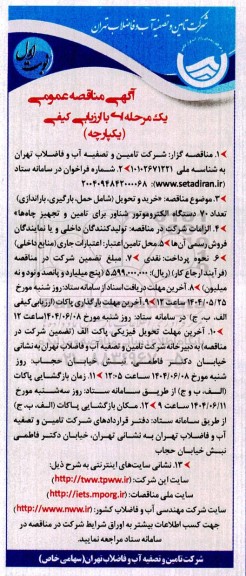 شرکت تامین و تصفیه آب و فاضلاب تهران
نوبت اول
آگهی مناقصه عمومی
یک مرحله‌ای با ارزیابی کیفی
(یکپارچه)
۱. مناقصه گزار: شرکت تامین و تصفیه آب و فاضلاب تهران
به شناسه ملی ۱۰۱۰۲۶۷۱۲۲۱ ۲. شماره فراخوان در سامانه ستاد
(www.setadiran.ir): ۲۰۰۴۰۹۴۸۴۲۰۰۰۰۶۸
۳. موضوع مناقصه: «خرید و تحویل (شامل حمل، بارگیری، باراندازی)
تعداد ۷۰ دستگاه الکتروموتور شناور برای تامین و تجهیز چاه‌ها»
۴. الزامات شرکت در مناقصه: تولیدکنندگان داخلی و یا نمایندگان
فروش رسمی آن‌ها ۵. محل تامین اعتبار: اعتبارات جاری (منابع داخلی)
۶. نحوه پرداخت: نقدی ۷. مبلغ تضمین شرکت در مناقصه
(فرآیند ارجاع کار) (ریال): ۵,۵۹۹,۰۰۰,۰۰۰ (پنج میلیارد و پانصد و نود و نه
میلیون) ۸. آخرین مهلت دریافت اسناد از سامانه ستاد: روز شنبه مورخ
۱۴۰۴/۰۵/۲۵ ساعت ۱۲ ۹. آخرین مهلت بارگذاری پاکات (ارزیابی کیفی
الف، ب، ج) در سامانه ستاد: روز شنبه مورخ ۱۴۰۴/۰۶/۰۸ ساعت ۱۲
۱۰. آخرین مهلت تحویل فیزیکی پاکت الف (تضمین شرکت در
مناقصه) به دبیرخانه شرکت تامین و تصفیه آب و فاضلاب تهران به نشانی
خیابان دکتر فاطمی، نبش خیابان حجاب: روز
شنبه مورخ ۱۴۰۴/۰۶/۰۸ ساعت ۱۲:۰۵ ۱۱. زمان بازگشایی پاکات
(الف، ب و ج) از طریق سامانه ستاد: روز سه‌شنبه مورخ
۱۴۰۴/۰۶/۱۱ ساعت ۹ ۱۲. مکان بازگشایی پاکات (الف، ب، ج)
از طریق سامانه ستاد: دفتر قراردادهای شرکت تامین و تصفیه
آب و فاضلاب تهران به نشانی تهران، خیابان دکتر فاطمی
نبش خیابان حجاب
۱۳. نشانی سایت‌های اینترنتی به شرح ذیل:
سایت این شرکت: (http://tww.tpww.ir)
سایت ملی مناقصات: (http://iets.mporg.ir)
سایت شرکت مهندسی آب و فاضلاب کشور: (http://www.nww.ir)
جهت کسب اطلاعات بیشتر به اوراق شرایط شرکت در مناقصه در
سامانه ستاد مراجعه نمایید.
شرکت تامین و تصفیه آب و فاضلاب تهران (سهامی خاص)